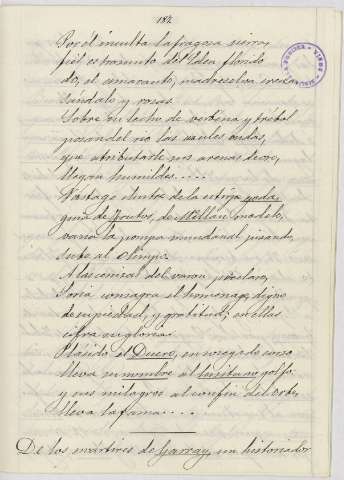 182
Por él inculta la fragosa sierra,
fiel estramuto del Eden florido
do, el amaranto, madreselva crecen
sándalo y rosas
Sobre un lecho de verbena y trébol
posan del rio las azules ondas,
que a tributarte sus arenas de oro,
llegan humildes....
Vástago ilustre de la estirpe goda,
guia de Prontos, de Millán modelo,
vana la pompa mundanal pisando,
sube al Olimpo.
A las cenizas del varon preclaro,
Soria consagra el homenage, digno
de su piedad, y gratitud; en ellas
cifra su gloria.
Plácido el Duero, en sosegado curso
lleva su nombre al lusitano golfo
y sus milagros al confin del orbe,
lleva la fama....
De los mártires de Garray, un historiador